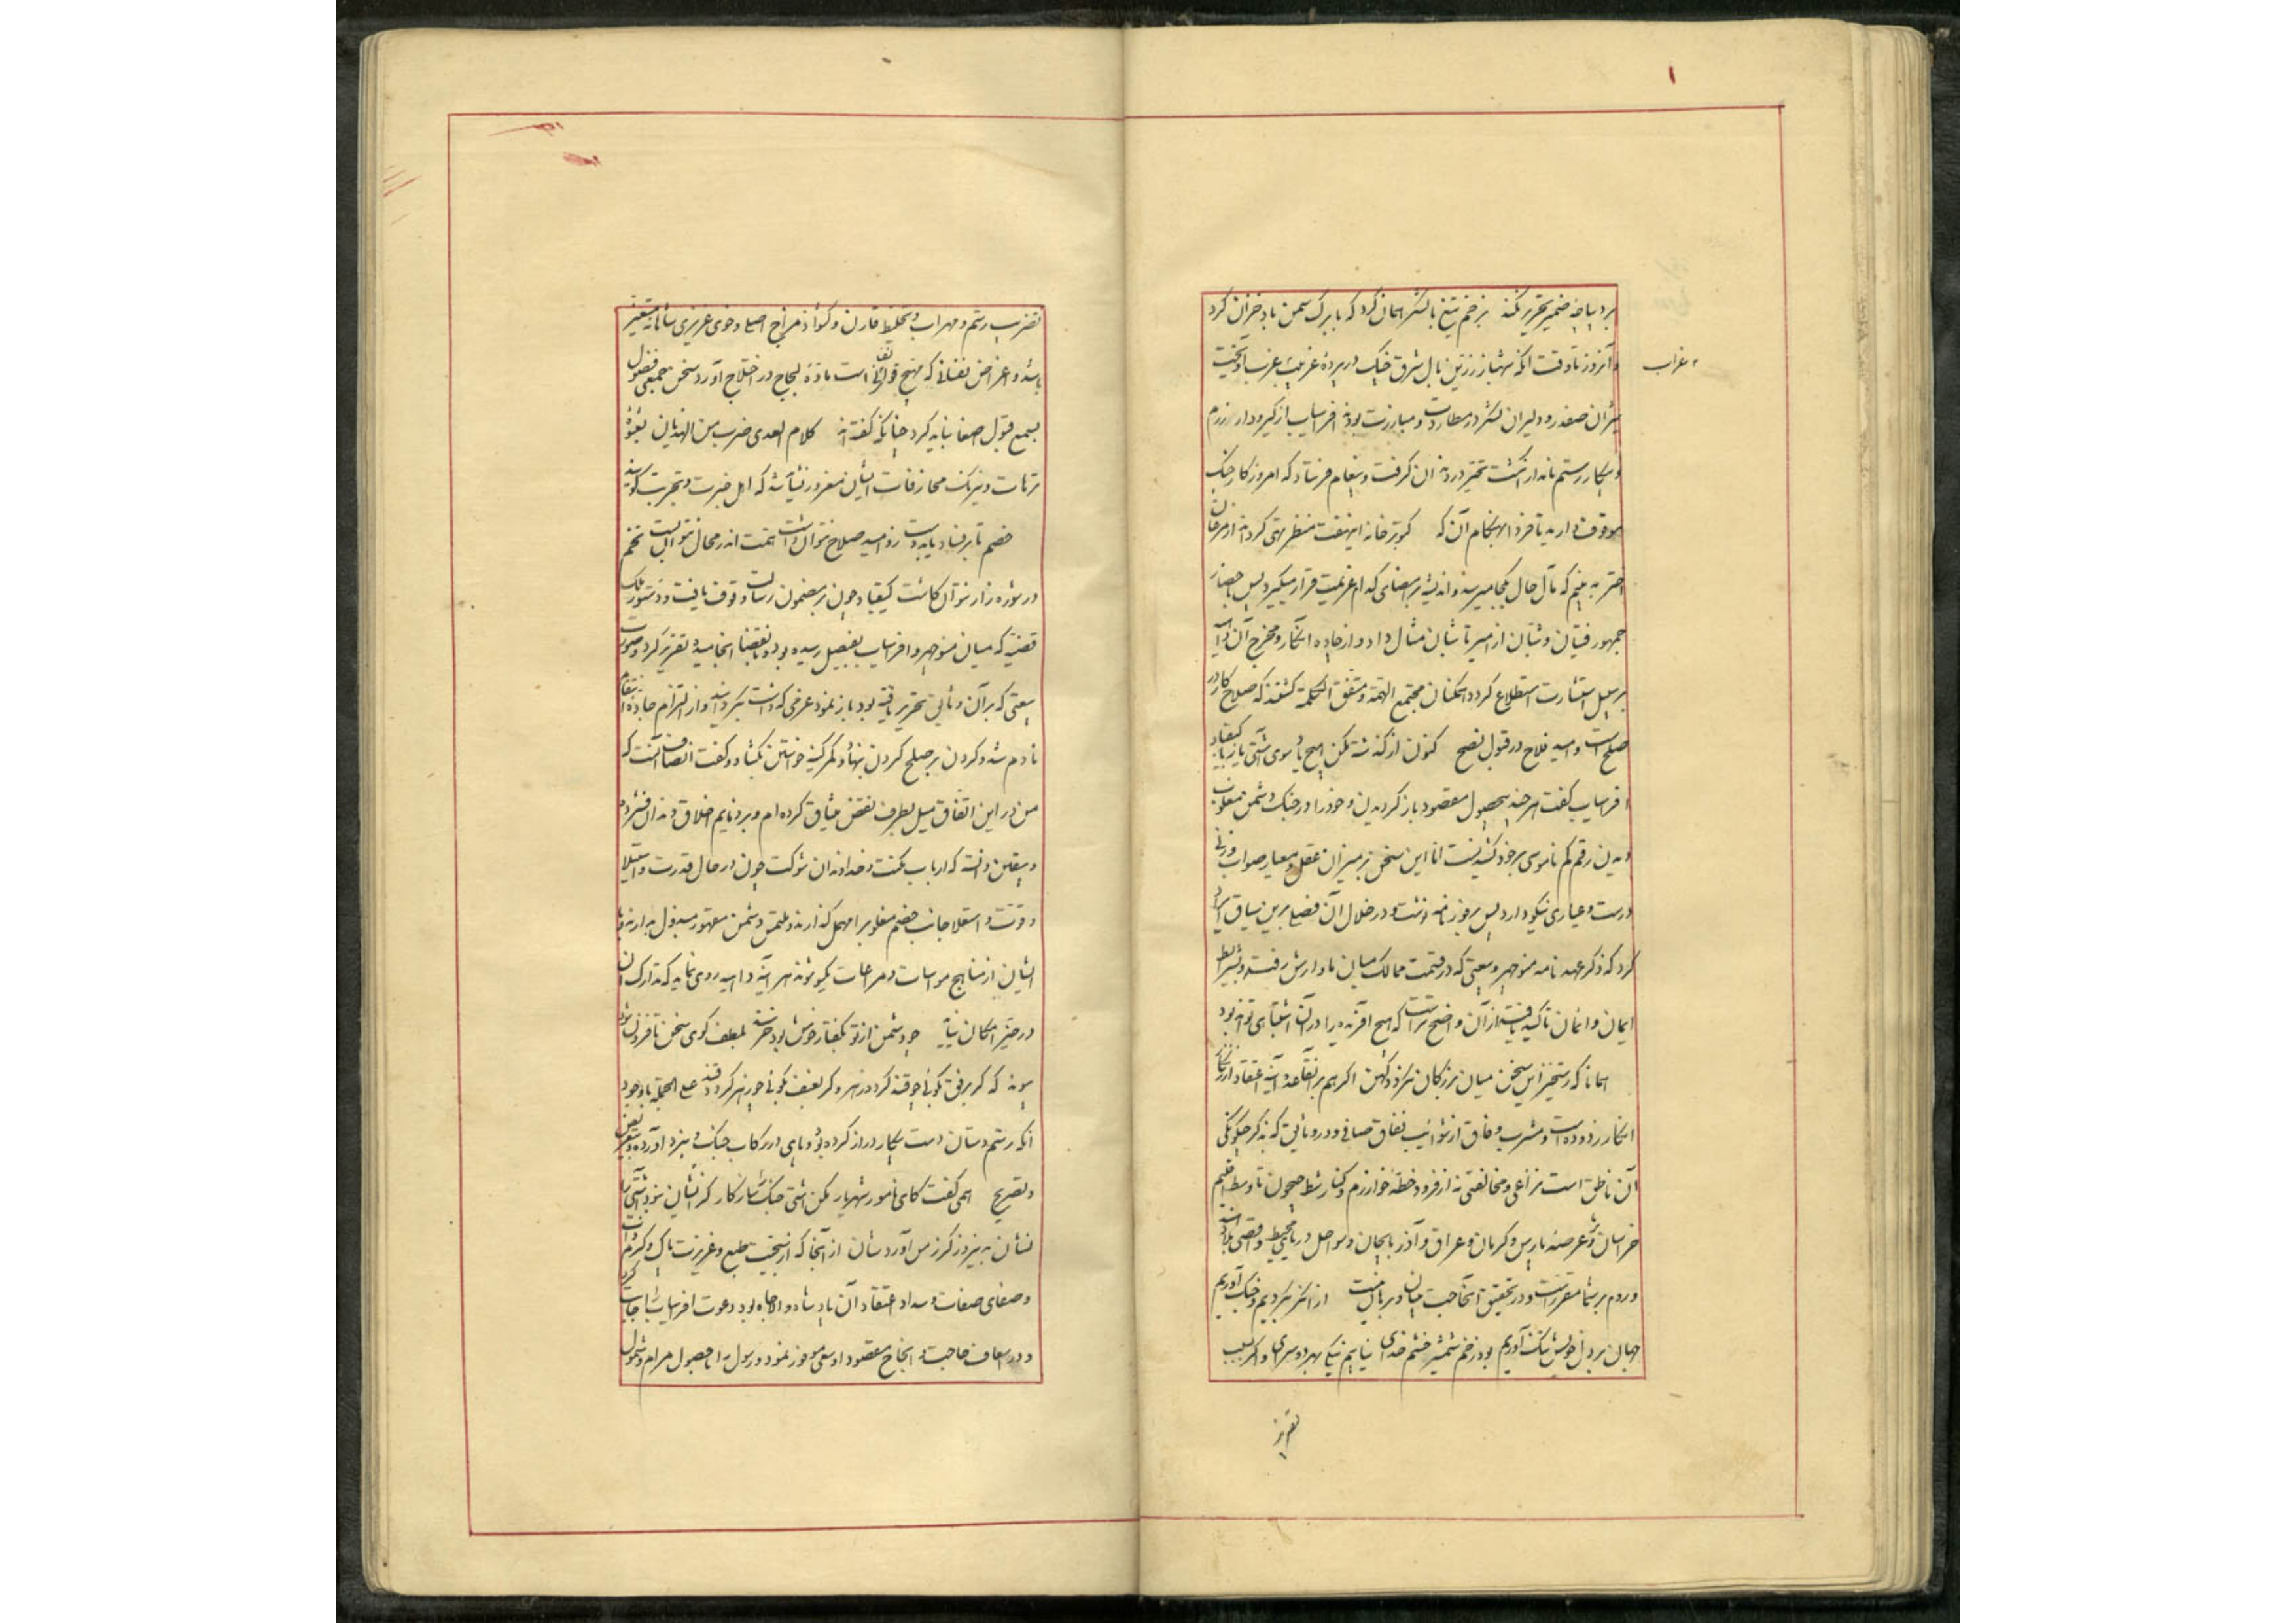 بر دیباچه ضمیر تحریر نکند بزخم تیغ با لشکر همان کرد که با برک سمن باد خزان کرد
و آنروز تا وقت آنکه شهباز زرین بال شرق خنک در پردۀ غربیب غرب آویخت
غراب
شیران صفدر و دلیران لشکر در مطاردت و مبارزت بودند افراسیاب از گیرودار رزم
و پیکار رستم نامدار انگشت تحیر در دندان گرفت و پیغام فرستاد که امروز کار جنک
موقوف دارید تا فردا بهنکام آن که کبوتر خانه این هفت منظر تهی کردد از مرغان
اختر به بینم که مآل حال بکجا میرسد و اندیشه بر امضای کدام عزیمت قرار میگیرد پس باحضار
جمهور فتیان و شبان از میر تا شبان مثال داد و از جاده انکار و مخرج آن داهیه
بر سبیل استشارت استطلاع کرد همکنان مجتمع الهمة و متفق الکلمة گفتند که صلاح کار در
صلح است و امید فلاح در قبول نصح کنون از گذشته مکن هیچ یاد سوی آشتی یاز با کیقباد
افراسیاب گفت هر چند بحصول مقصود باز کردیدن و خود را در جنک دشمن مغلوب
دیدن رقم کم ناموسی بر خود کشیدنست اما این سخن بر میزان عقل و معیار صواب وزنی
درست و عیاری نیکو دارد پس بروز نامه نوشت و در خلال آن فصلی برین سیاق ایراد
کرد که ذکر عهد نامه منوچهر و بیعتی که در قسمت ممالک میان ما و ارش رفت و بشرایط
ایمان و ایمان تاکید یافت از آن واضح تر است که هیچ آفریده را در آن اشتباهی تواند بود
همانا که رستخیز این سخن میان بزرکان نکردد کهن اکر هم بر آنقاعده آینه اعتقاد از زنگار
انکار زدوده است و مشرب وفاق از شوائب نفاق صافی و در وثایق که بذکر چگونکی
آن ناطق است نزاعی و مخالفتی نه از فرود خطۀ خوارزم و کنار شط جیحون تا وسط اقلیم
خراسان و عرصه پارس و کرمان و عراق و آذربایجان و سواحل دریای محیط و اقصی بلاد
و روم بر شما مقرر است و در تحقیق آنجا حجت میان و برهان مبین از ایدر نکردیم و جنک آوریم
جهان بر دل خویش تنک آوریم بود زخم شمشیر و خشم خدای نیابیم نیکی بهر دو سرای و اکر بسبب
تقریر
تضریب رستم و مهراب و تخلیط قارن و کشواد مزاج اصلی و خوی عزیزی سامانه متغیر
باشد و اعراض نفسانی که مهیج قوای است مادۀ لجاج در اختلاج آورد سخن جمعی فضول
بسمع قبول اصغا نباید کرد چنانکه گفته اند کلام العدی ضرب من الهذیان بعشوۀ
ترهات و نیرنک مخارفات ایشان مغرور نباید شد که اهل خبرت و تجربت گویند
خصم تا بر فساد یابد دست زو امید صلاح نتوان داشت همت اندر محال نتوان بست تخم
در شوره زار نتوان کاشت کیقباد چون بر مضمون رسالت وقوف یافت و دستور ملک
قضیتی که میان منوچهر و افراسیاب بفیصل رسیده بود و بامضا انجامیده تقریر کرد و صورت
بیعتی که بر آن وثایق تحریر یافته بود باز نمود عزمی که داشت بکردانید و از التزام جادۀ انتقام
نادم شد و کردن بر صلح کردن بنهاد و کمر کینه خواستن بکشاد و گفت انصاف آنست که
من در این اتفاق میل بطرف نقض میثاق کرده ام و بر دنایم اخلاق دندان فشرده
و یقین دانسته که ارباب مکنت و خداوندان شوکت چون در حال قدرت و استیلا
و قوت و استعلا جانب خصم مغلوب را مهمل گذارند و ملتمس دشمن مقهور مبذول ندارند و با
ایشان از مناهج مواسات و مراعات یکسو شوند هر آینه داهیه روی نماید که تدارک آن
در حیز امکان نیاید چو دشمن از تو بگفتار خوش بود خرسند بلطف گوی سخن تا فزون شود
پیوند که کر برفق گوئی چو قند کردد زهر و کر بعنف گوئی چو زهر کردد قند علی الجمله باوجود
آنکه رستم دستان دست پیکار دراز کرده بود و پای در رکاب جنک و نبرد آورده و بتعریض
و تصریح همی گفت کای نامور شهریار مکن آشتی جنک را ساز کار کز ایشان نبود آشتی را
نشان به نیروز کرز من آورد شان از آنجا که از نجیبت طبع و عزیزت پاک و کرم ذات
و صفای صفات و سداد اعتقاد آن پادشاه والا جاه بود دعوت افراسیاب را اجابت کرد
و در اسعاف حاجت و انجاح مقصود او سعی موفور نمود و رسول را با حصول مرام و شمول